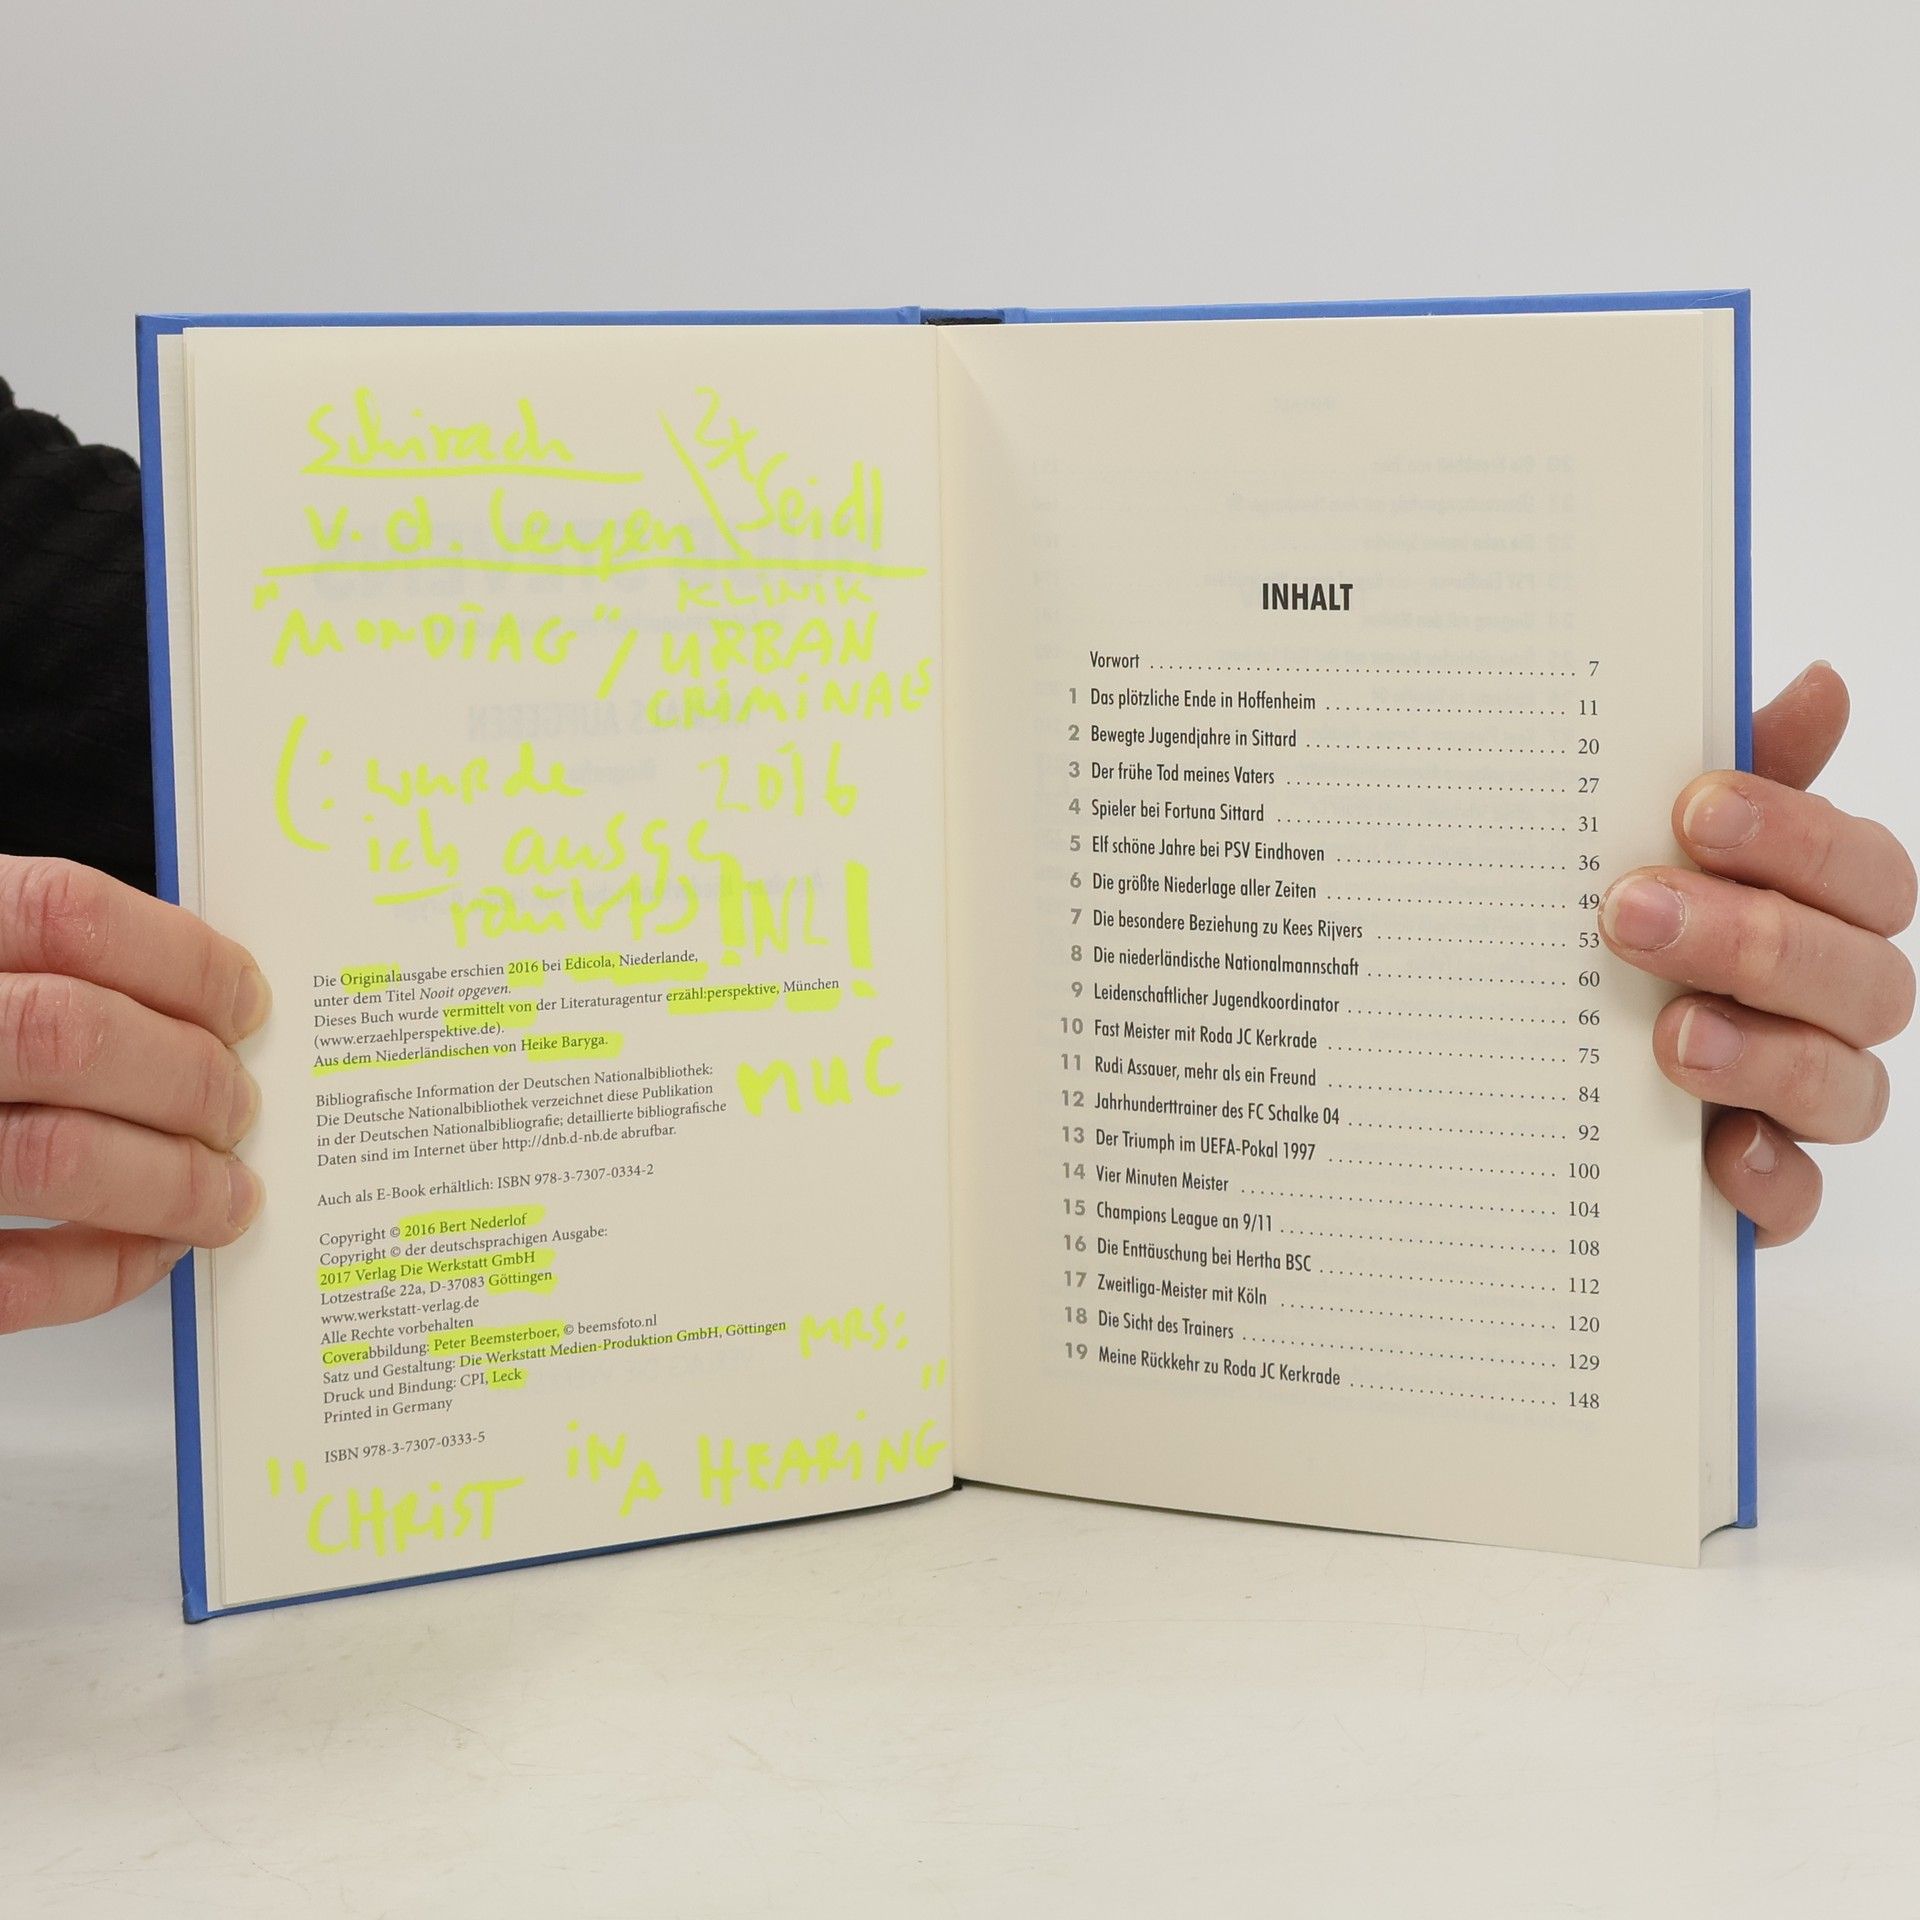 Schirach
2x
v. d. Leyen
Seidl
"MONDTAG" /
KLINIK
URBAN
CRIMINALS
(: wurde 2016
ich ausge
raubt
! NL !
Die Originalausgabe erschien 2016 bei Edicola, Niederlande,
unter dem Titel Nooit opgeven.
Dieses Buch wurde vermittelt von der Literaturagentur erzähl:perspektive, München
(www.erzaehlperspektive.de).
Aus dem Niederländischen von Heike Baryga.
MUC
Bibliografische Information der Deutschen Nationalbibliothek:
Die Deutsche Nationalbibliothek verzeichnet diese Publikation
in der Deutschen Nationalbibliografie; detaillierte bibliografische
Daten sind im Internet über http://dnb.d-nb.de abrufbar.
Auch als E-Book erhältlich: ISBN 978-3-7307-0334-2
Copyright © 2016 Bert Nederlof
Copyright © der deutschsprachigen Ausgabe:
2017 Verlag Die Werkstatt GmbH
Lotzestraße 22a, D-37083 Göttingen
www.werkstatt-verlag.de
Alle Rechte vorbehalten
Coverabbildung: Peter Beemsterboer, © beemsfoto.nl
Satz und Gestaltung: Die Werkstatt Medien-Produktion GmbH, Göttingen
Druck und Bindung: CPI, Leck
Printed in Germany
ISBN 978-3-7307-0333-5
MRS:
"CHRIST IN A HEARING"
INHALT
Vorwort 7
1 Das plötzliche Ende in Hoffenheim 11
2 Bewegte Jugendjahre in Sittard 20
3 Der frühe Tod meines Vaters 27
4 Spieler bei Fortuna Sittard 31
5 Elf schöne Jahre bei PSV Eindhoven 36
6 Die größte Niederlage aller Zeiten 49
7 Die besondere Beziehung zu Kees Rijvers 53
8 Die niederländische Nationalmannschaft 60
9 Leidenschaftlicher Jugendkoordinator 66
10 Fast Meister mit Roda JC Kerkrade 75
11 Rudi Assauer, mehr als ein Freund 84
12 Jahrhunderttrainer des FC Schalke 04 92
13 Der Triumph im UEFA-Pokal 1997 100
14 Vier Minuten Meister 104
15 Champions League an 9/11 108
16 Die Enttäuschung bei Hertha BSC 112
17 Zweitliga-Meister mit Köln 120
18 Die Sicht des Trainers 129
19 Meine Rückkehr zu Roda JC Kerkrade 148